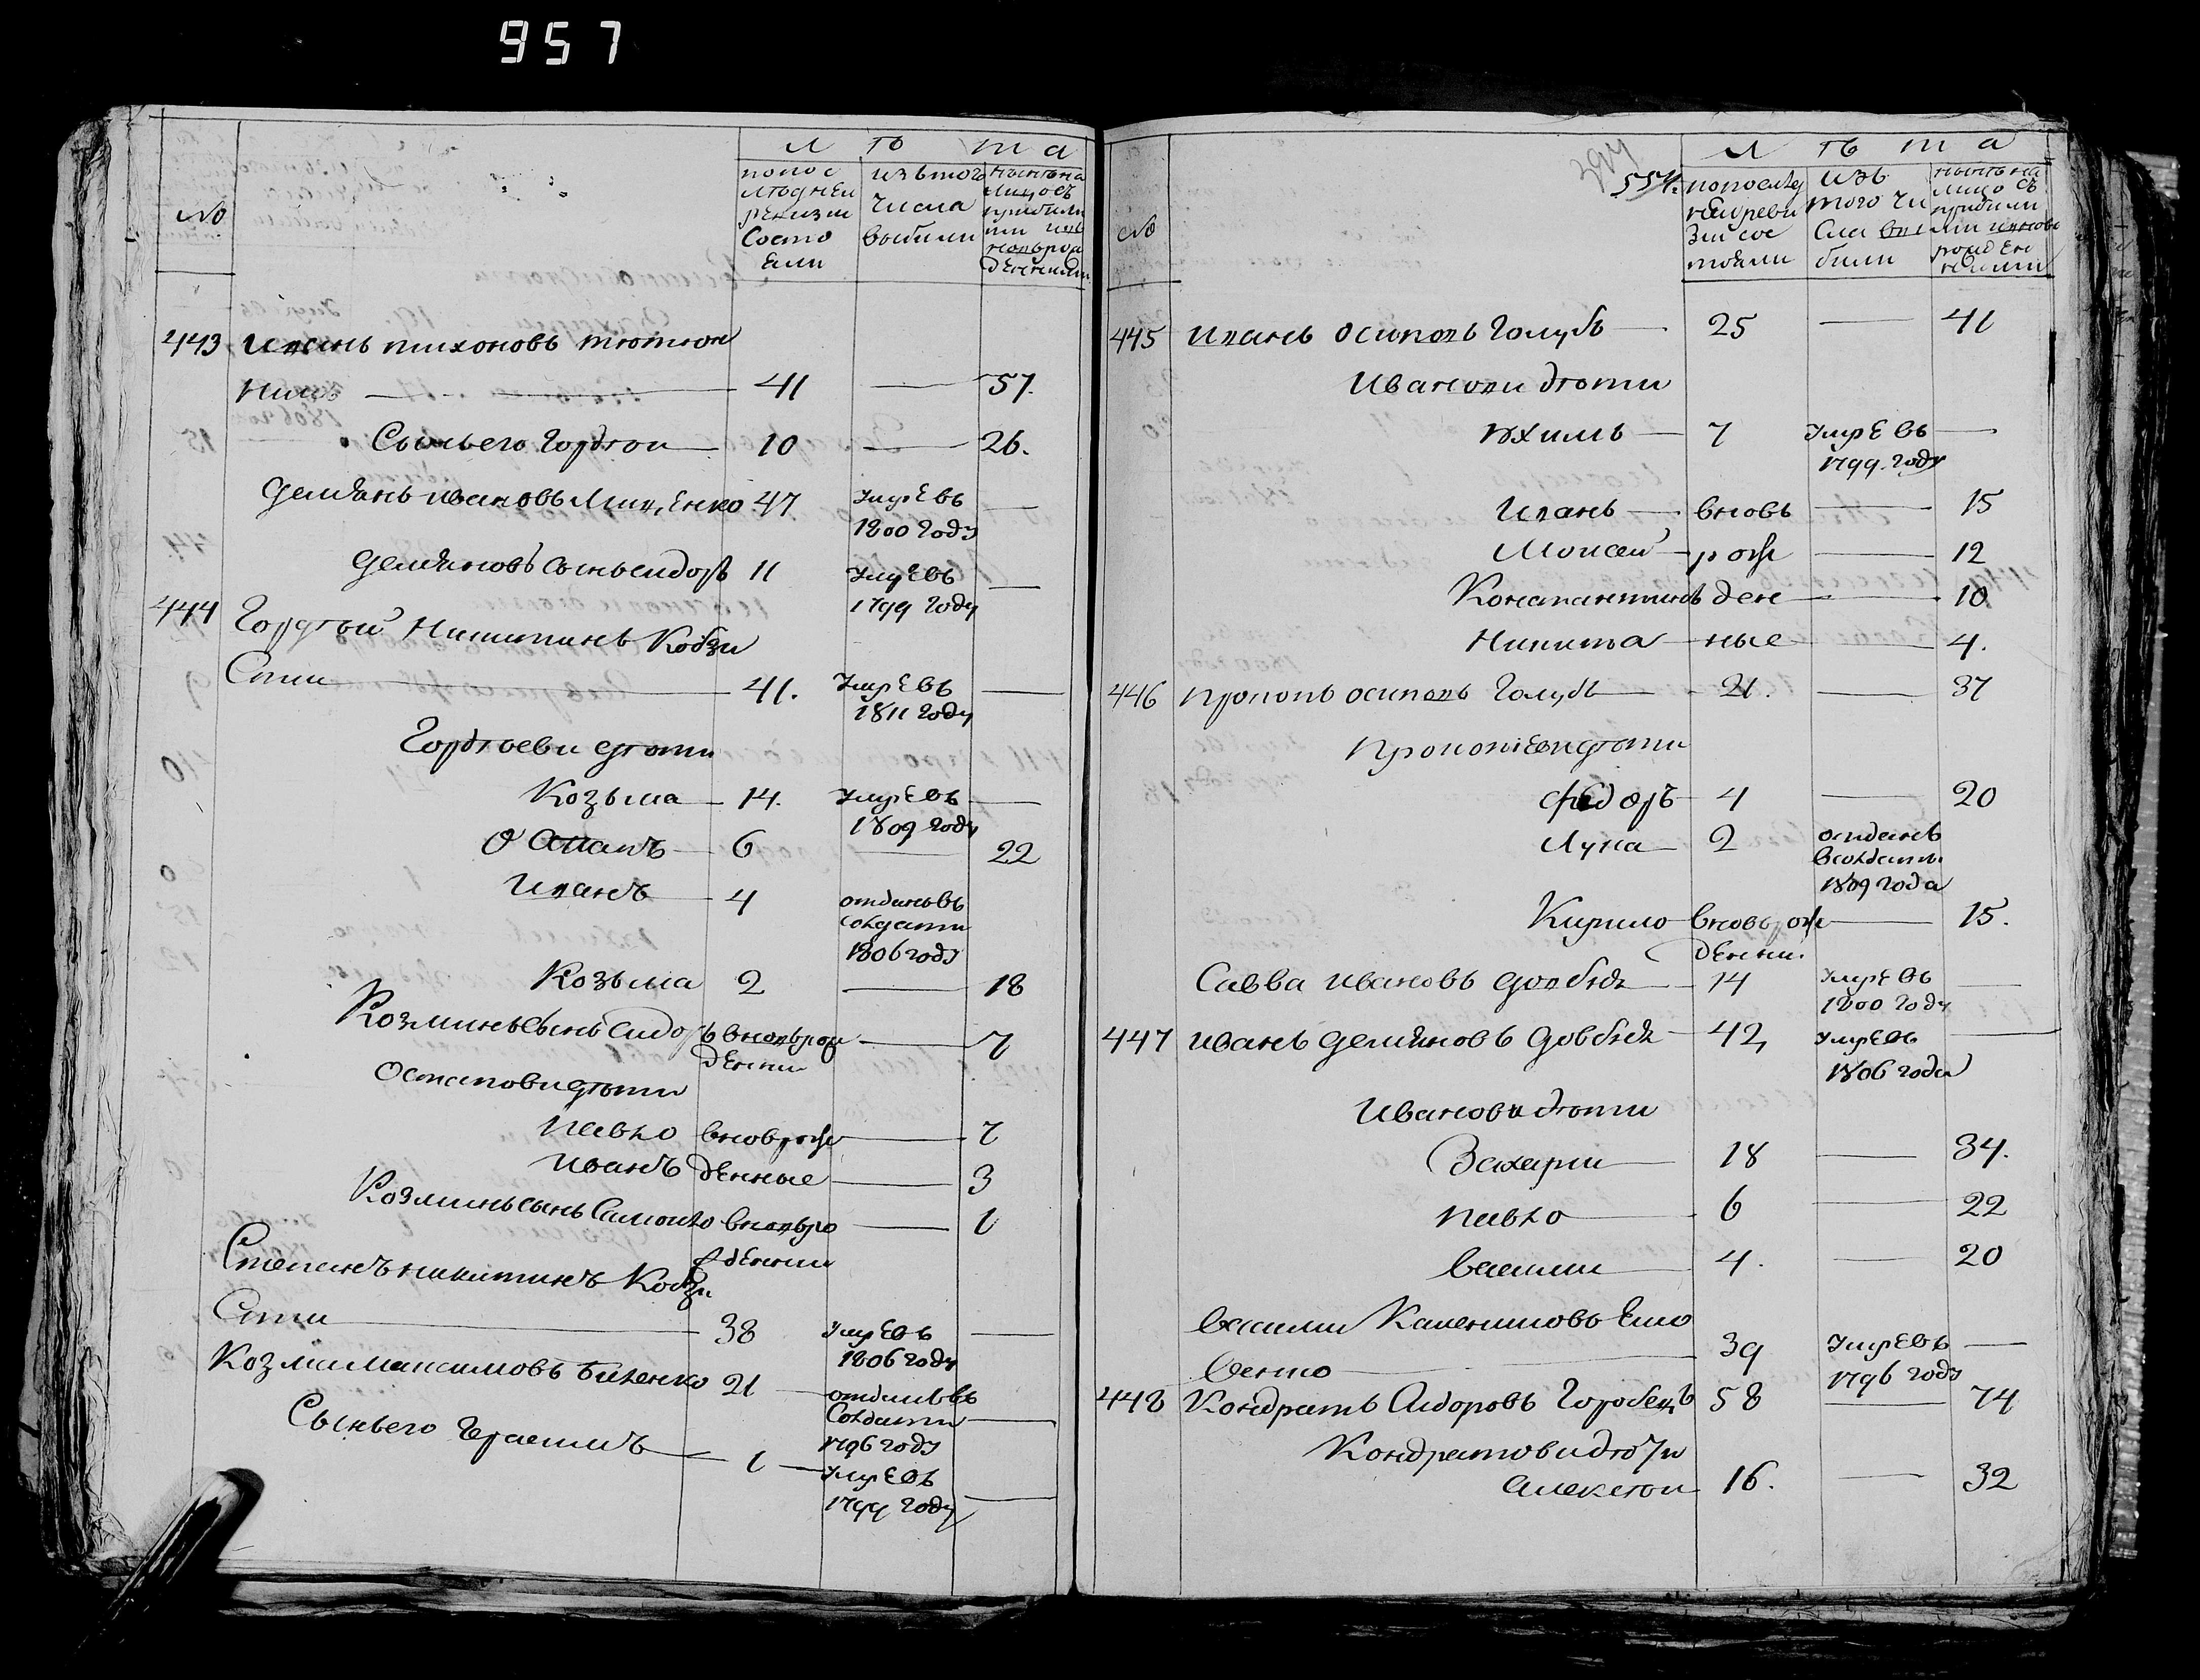 957
Л Ѣ Т А
№
попос
лѣдней
ревизии
Состо
яли
изътого
числа
выбыли
нынѣна
лицосъ
прибыли
ми и
вновьрож
денными
443 Иванъ тихоновъ тютюн
никъ — 41 — 57.
Сынъего Гордѣи — 10 — 26.
Демянъ ивановъ 47 умревъ —
1800 году
Демяновъ сынъсидоръ 11 умревъ —
1799 году
444 Гордѣй Никитинъ Кобзи
Сти — 41. умревъ —
1811 году
Гордѣеви дѣти
Козьма — 14. умревъ —
1809 году
Остапъ — 6 — 22
Иванъ — 4 отданъвъ
солдати
1806 году
Козьма 2 — 18
Козминъсынъсидоръ вновьрож — 7
денни
Остаповидѣти
павло вноврож — 7
иванъ денные — 3
Козминъсынъ Самоило вновьро — 1
жденни
Степанъ никитинъ Кобзи
Сти — 38 умревъ —
1806 году
Козма Максимовъ Биленко 21 — отданъвъ
Солдати —
1796 году
Сынъего Герасимъ — 1 — умревъ
1799 году —
394
554.
Л Ѣ Т А
№
попослед
ней реви
зии сос
тояли
изъ
того чи
сла вы
были
нынѣна
лицо съ
прибыли
ми ивновь
рожден
ными
445 Иванъ осиповъ Голубъ — 25 — 41
Иванови дѣти
якимъ — 7 умревъ —
1799. году
Иванъ — вновь — 15
Моисей — рож — 12
Константинъ ден — 10
Никита — ные — 4.
446 прокопъ осиповъ Голубъ — 21. — 37
Прокопіевидѣти
федоръ — 4 — 20
Лука — 2 отданъ
всолдати
1809 года
Кирило вновьрож — 15.
денни.
Савва ивановъ довбня — 14 умревъ —
1800 году
447 иванъ демяновъ довбня — 42, умревъ —
1806 года
Иванови дѣти
Захарии — 18 — 34.
павло — 6 — 22
василии — 4. — 20
василии
— 39 умревъ —
1796 году
448 Кондратъ Сидоровъ Горобецъ 58 — 74
Кондратовидѣти
алексѣи — 16. — 32